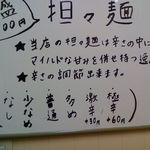 盛
00円
担々麺
★当店の担々麺は辛さの中に
マイルドな甘みを併せ持つ
★辛さの調節出来ます。
なし
少なめ
普通
多め
激辛+30円
極辛+60円